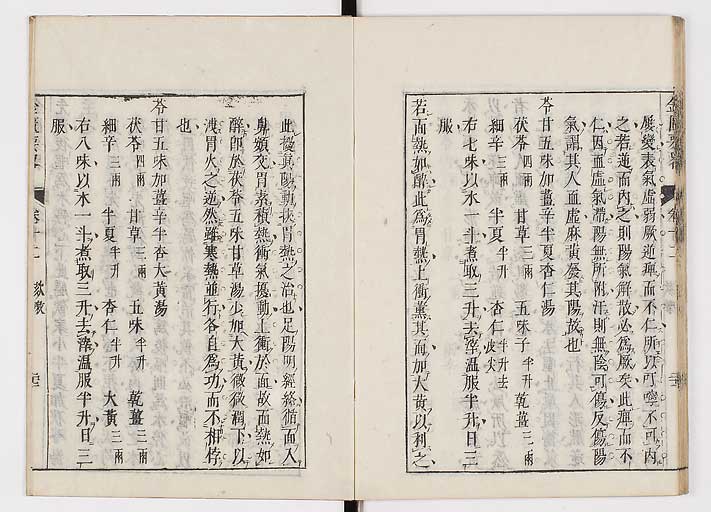 屢變表氣虛弱厥逆痺而不仁所以可㗸不可內
之若逆而內之則陽氣解散必為厥矣此痺而不
仁因血虛氣滯陽無所附汗則無陰可傷反傷陽
氣謂其人血虛麻黃發其陽故也
苓甘五味加薑辛半夏杏仁湯
茯苓四兩 甘草三兩 五味子半升 乾薑三兩
細辛三兩 半夏半升 杏仁半升去皮尖
右七味以水一斗煮取三升去滓溫服半升日三
服
若面熱如醉此為胃熱上衝薰其面加大黃以利之
此擾其陽動挾胃熱之治也足陽明經絡循面入
鼻頞交胃素積熱衝氣擾動上衝於面故面熱如
醉即於茯苓五味甘草湯少加大黃微微潤下以
洩胃火之逆然雖寒熱並行各自為功而不相悖
也
苓甘五味加薑辛半杏大黃湯
茯苓四兩 甘草三兩 五味半升 乾薑三兩
細辛三兩 半夏半升 杏仁半升 大黃三兩
右八味以水一斗煮取三升去滓溫服半升日三
服
卷十二 欬嗽